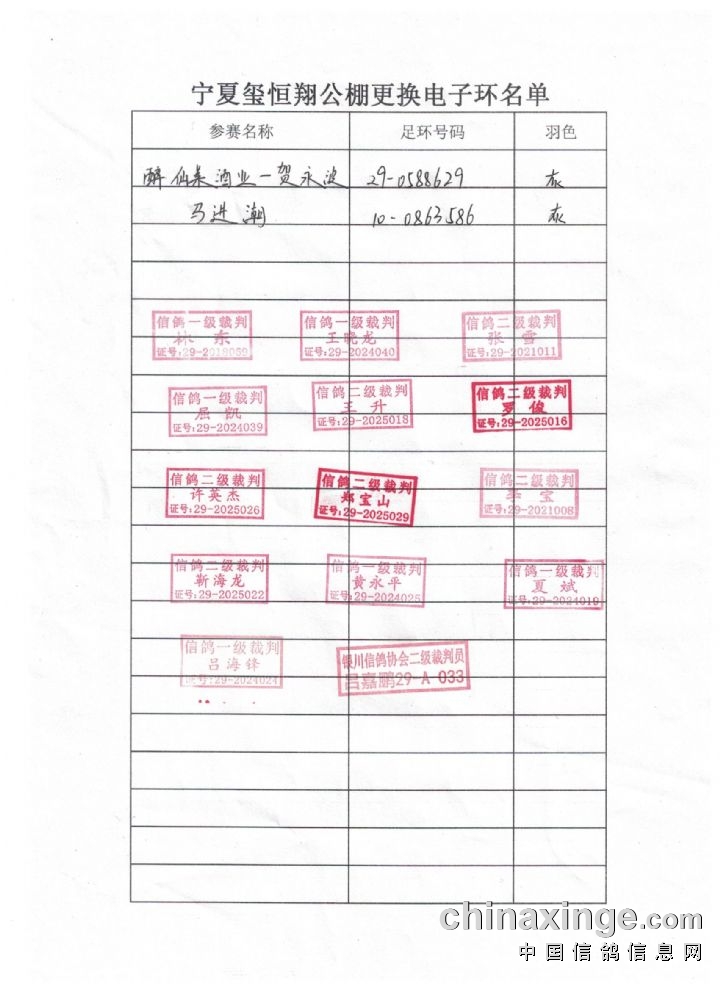 宁夏玺恒翔公棚更换电子环名单
参赛名称 足环号码 羽色
醉仙来酒业一贺永波 29-0588629 灰
马进潮 10-0863586 灰
信鸽一级裁判 信鸽一级裁判 信鸽二级裁判
林东 王晓龙 张雪
证号:29-2018059 证号:29-2024040 证号:29-2021011
信鸽一级裁判 信鸽二级裁判 信鸽二级裁判
屈凯 王升 罗俊
证号:29-2024039 证号:29-2025018 证号:29-2025016
信鸽二级裁判 信鸽二级裁判 信鸽二级裁判
许英杰 郑宝山 宝
证号:29-2025026 证号:29-2025029 证号:29-2021008
信鸽二级裁判 信鸽一级裁判 信鸽一级裁判
靳海龙 黄永平 夏斌
证号:29-2025022 证号:29-2024025 证号:29-2024019
信鸽一级裁判 银川信鸽协会二级裁判员
吕海锋 吕嘉鹏29-A 033
证号:29-2024024
chinaxinge.com
中国信鸽信息网